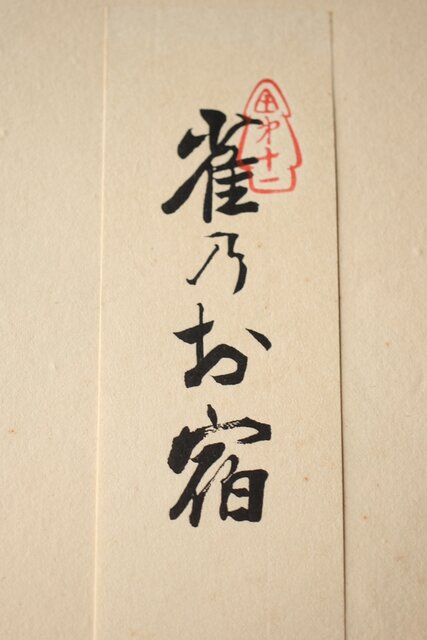 雀乃お宿